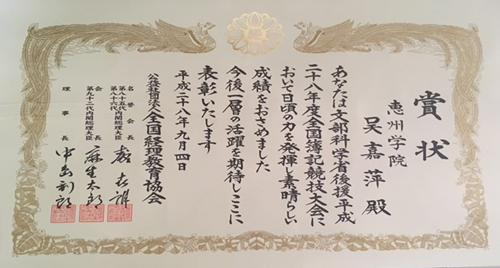 賞状
惠州学院
吴嘉萍 殿
あなたは文部科学省後援平成
二十八年度全国簿記競技大会に
おいて日頃の力を発揮し素晴らしい
成績をおさめました
今後一層の活躍を期待しここに
表彰いたします
平成二十八年九月四日
公益社団法人全国経理教育協会
名誉会長
会長
第九十二代内閣総理大臣
麻生太郎
理事長
中島利郎